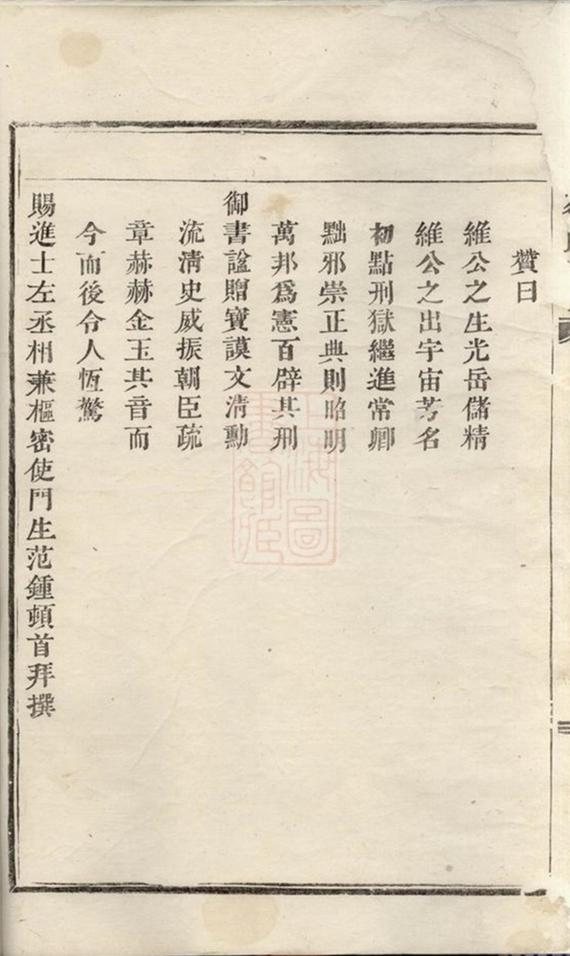 贊曰
維公之生光岳儲精
維公之出宇宙芳名
初點刑獄繼進常卿
黜邪崇正典則昭明
萬邦爲憲百辟其刑
御書謚贈寶謨文清勳
流淸史威振朝臣疏
章赫赫金玉其音而
今而後令人恆驚
賜進士左丞相兼樞密使門生范鍾頓首拜撰
上海圖
書館藏